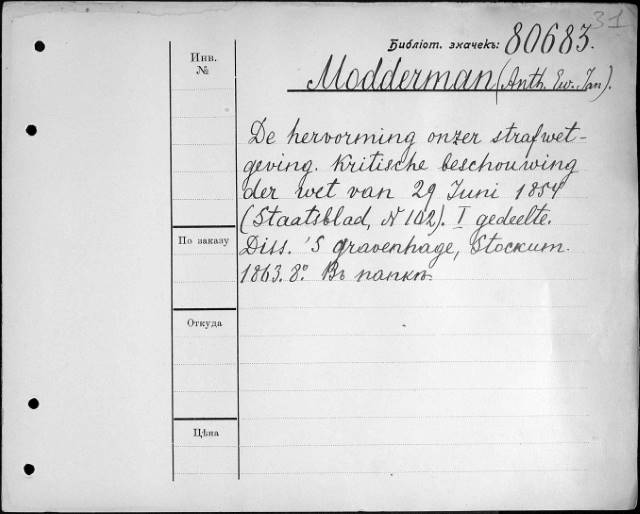 31
Библіот. значекъ: 80683.
Инв.
№
Modderman (Anth. Ew. Jan).
De hervorming onzer strafwet-
geving. Kritische beschouwing
der wet van 29 Juni 1854
(Staatsblad, N 102). I gedeelte.
По заказу
Diss. 'S gravenhage, Stockum.
1863. 8º. Въ папкѣ.
Откуда
Цѣна